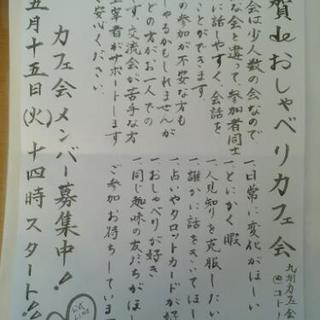 賀deおしゃべりカフェ会
九州カフェ会
会は少人数の会なので
な会と違って、参加者同士
に話しやすく、会話を
ことができます。
の参加が不安な方も
しゃるかもしれませんが
どの方がお一人での
す。交流会が苦手な方
主宰者がサポートします
安心ください。
一、日常に変化がほしい
一、とにかく暇
一、人見知りを克服したい
一、誰かに話をきいてほし
一、占いやタロットカードが好
一、おしゃべりが好き
一、同じ趣味の友だちがほし
ご参加お待ちしていま
カフェ会メンバー募集中!!
五月十五日(火)十四時スタート!!